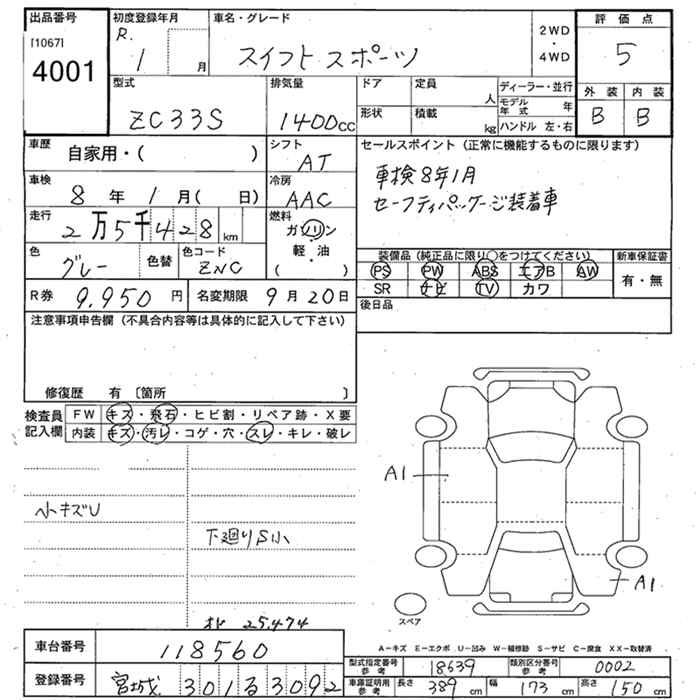 出品番号
[1067]
4001
初度登録年月
R.
1 月
車名・グレード
スイフト スポーツ
2WD
・
4WD
評価点
5
外装 内装
B B
型式
ZC33S
排気量
1400cc
ドア
定員
人
形状
積載
kg
ディーラー・並行
モデル年式 年
ハンドル 左・右
車歴
自家用・( )
シフト
AT
車検
8年1月( 日)
冷房
AAC
走行
2万5千428km
燃料
ガソリン
・
軽・油
( )
色
グレー
色替
色コード
ZNC
R券 9,950円
名変期限 9月20日
セールスポイント (正常に機能するものに限ります)
車検8年1月
セーフティパッケージ装着車
装備品 (純正品に限り○をつけてください)
PS PW ABS エアB AW
SR ナビ TV カワ
新車保証書
有・無
後日品
注意事項申告欄 (不具合内容等は具体的に記入して下さい)
修復歴 有 〔箇所 〕
検査員記入欄
FW キズ・飛石・ヒビ割・リペア跡・X要
内装 キズ・汚レ・コゲ・穴・スレ・キレ・破レ
小キズU
下廻りS小
25,474
A1
A1
スペア
A-キズ E-エクボ U-凹み W-補修跡 S-サビ C-腐食 XX-取替済
車台番号 118560
登録番号 宮城 301 る 3092
型式指定番号 参考 18639
類別区分番号 参考 0002
車庫証明用 参考 長さ 389cm 幅 173cm 高さ 150cm